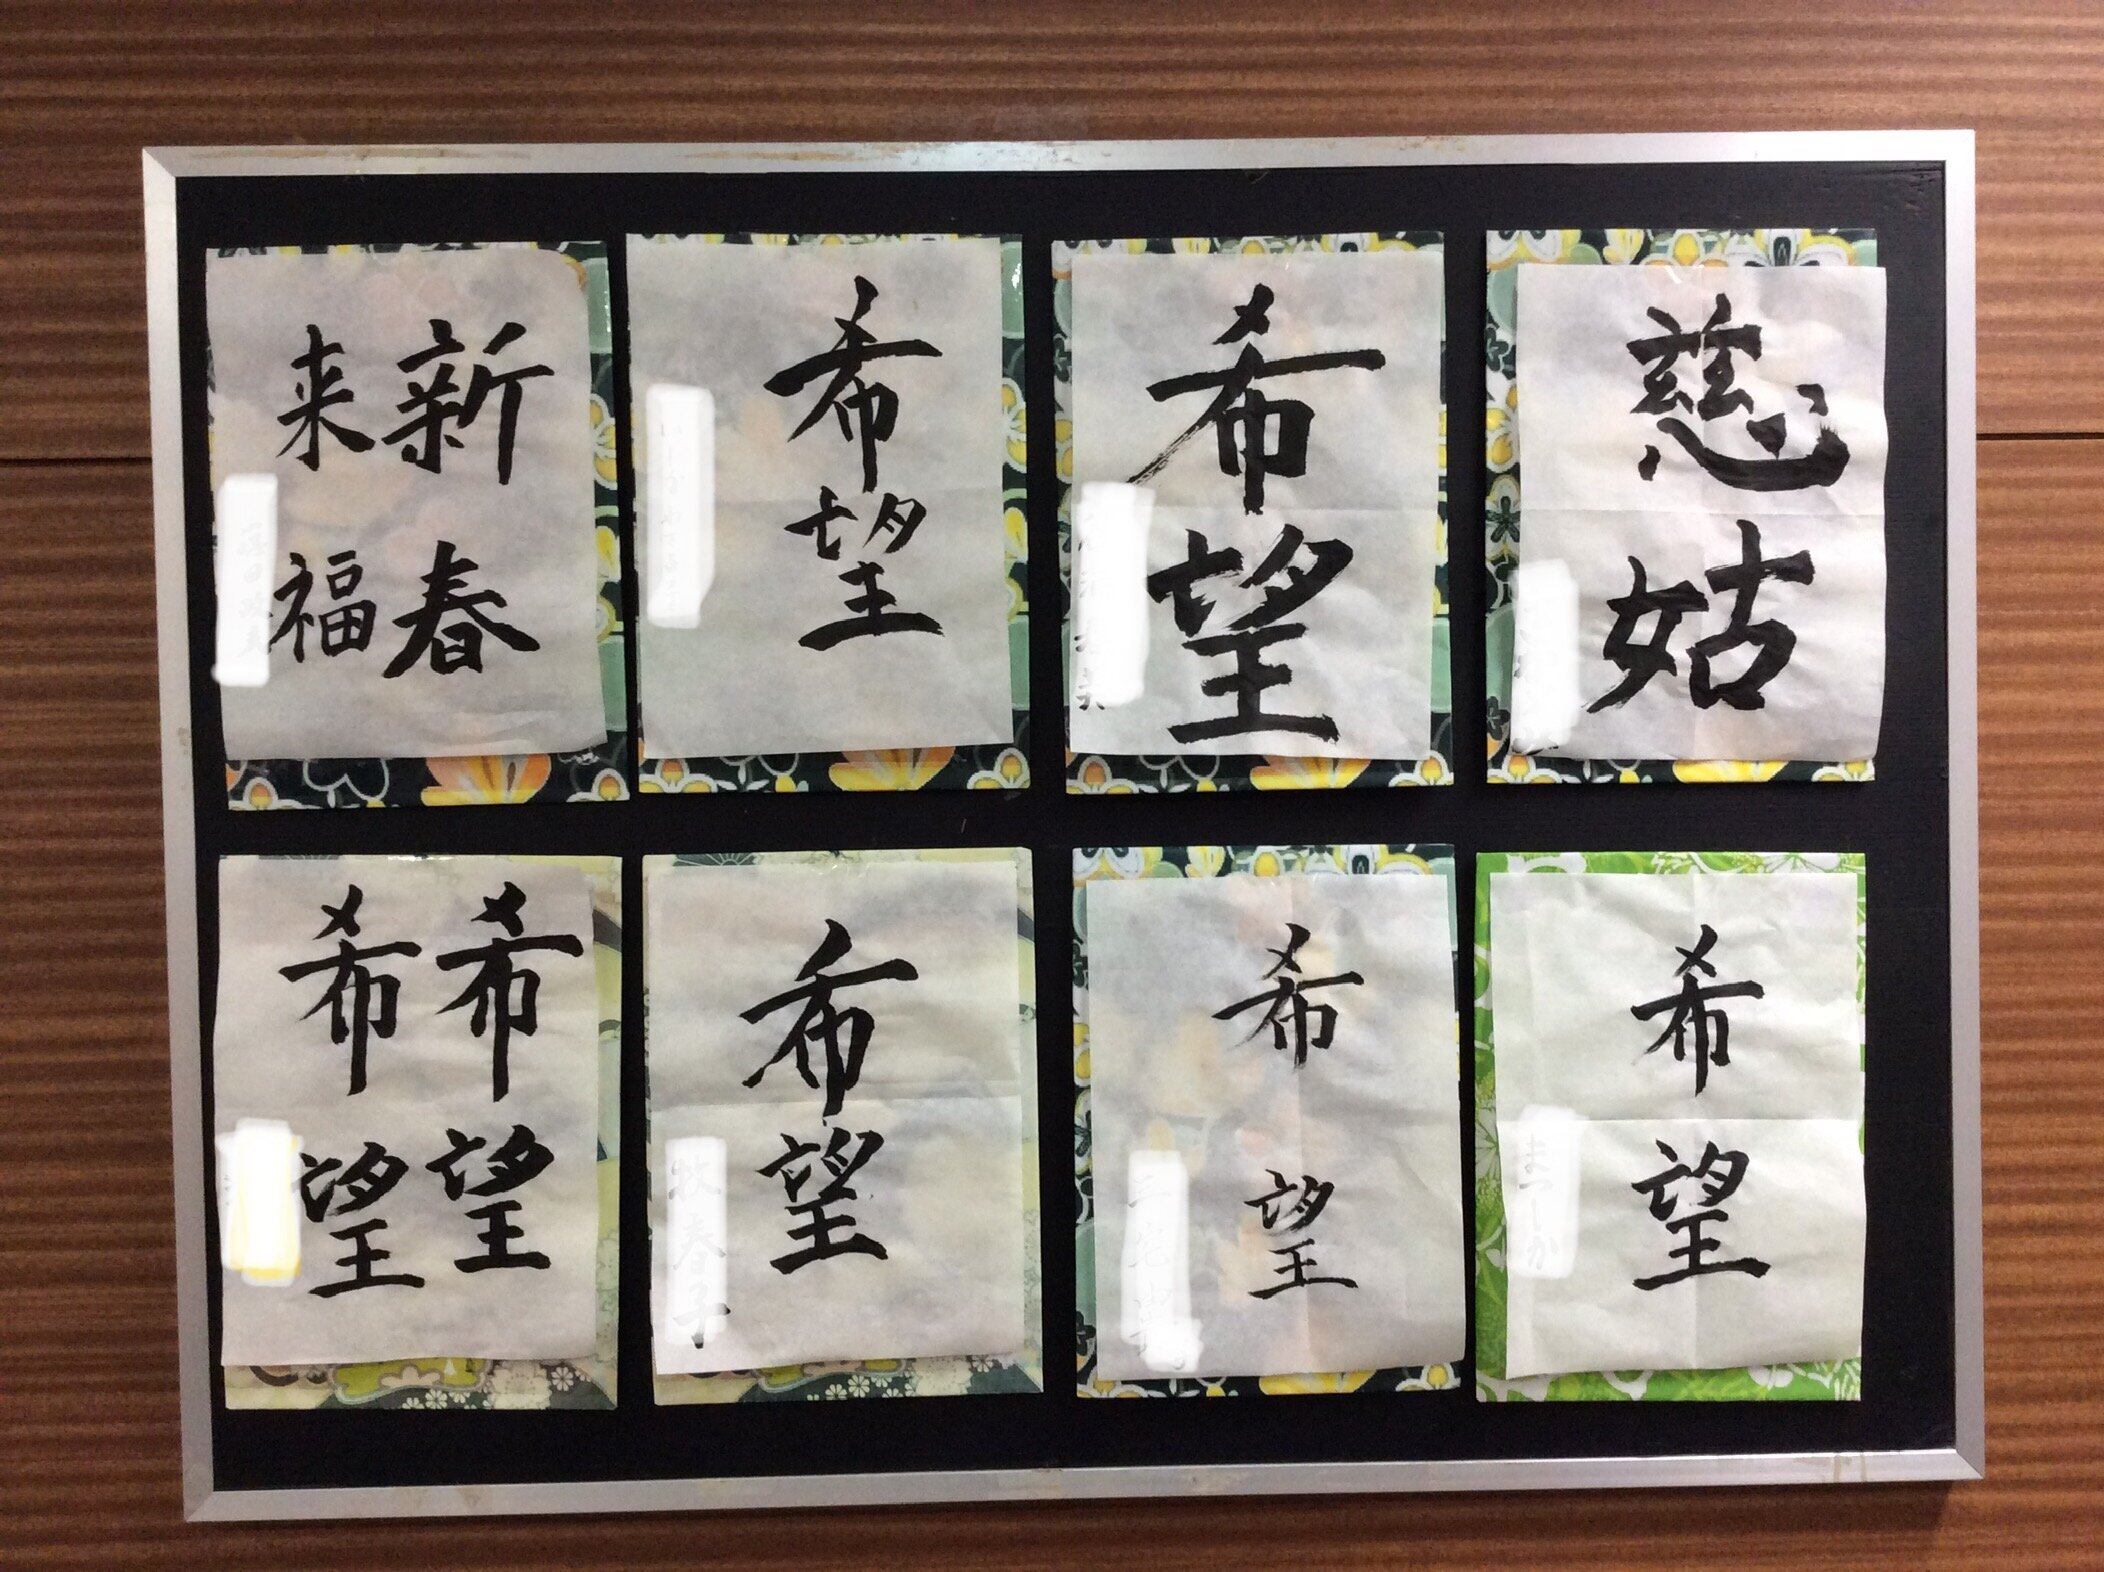 新春
来福
希望
希望
慈姑
希望
希望
希望
希望
希望